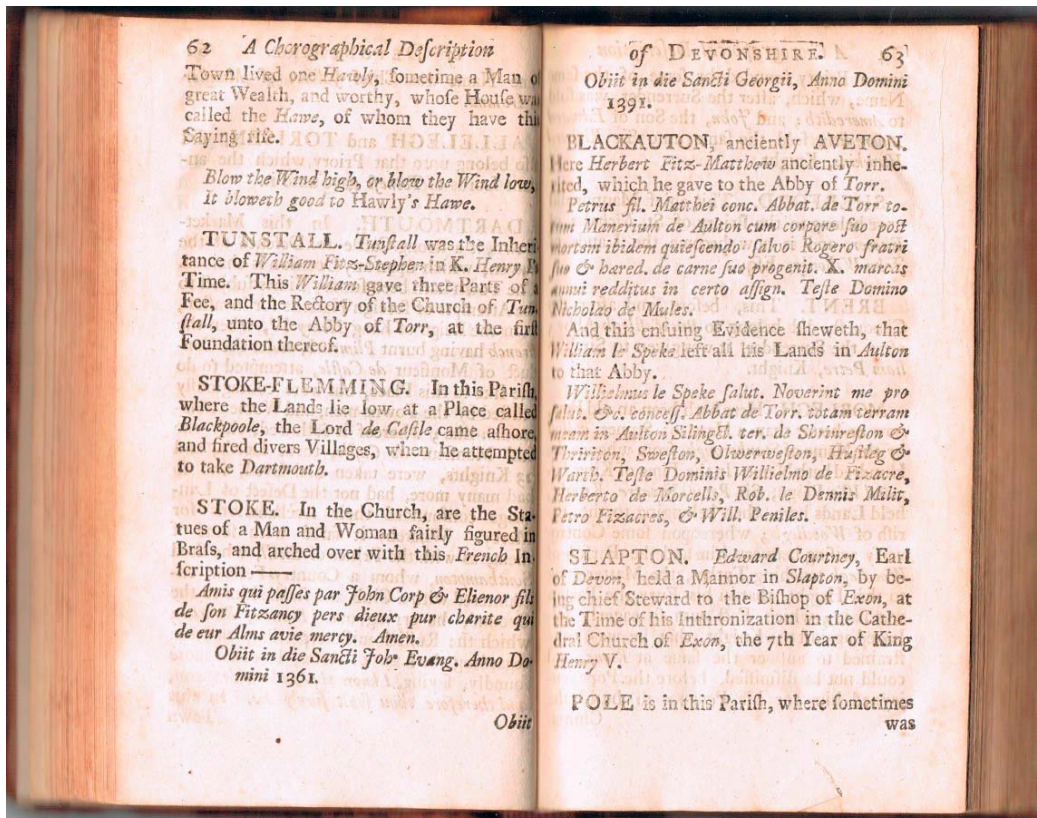 62 A Chorographical Deſcription
Town lived one Hawly, ſometime a Man of
great Wealth, and worthy, whoſe Houſe was
called the Hawe, of whom they have this
Saying riſe.
Blow the Wind high, or blow the Wind low,
It bloweth good to Hawly's Hawe.
TUNSTALL. Tunſtall was the Inheri-
tance of William Fitz-Stephen in K. Henry I's
Time. This William gave three Parts of a
Fee, and the Rectory of the Church of Tun-
ſtall, unto the Abby of Torr, at the firſt
Foundation thereof.
STOKE-FLEMMING. In this Pariſh,
where the Lands lie low at a Place called
Blackpoole, the Lord de Caſtle came aſhore,
and fired divers Villages, when he attempted
to take Dartmouth.
STOKE. In the Church, are the Sta-
tues of a Man and Woman fairly figured in
Braſs, and arched over with this French In-
ſcription ——
Amis qui paſſes par John Corp & Elienor fils
de ſon Fitzancy pers dieux pur charite qui
de eur Alms avie mercy. Amen.
Obiit in die Sancti Joh. Evang. Anno Do-
mini 1361.
Obiit
of DEVONSHIRE. 63
Obiit in die Sancti Georgii, Anno Domini
1391.
BLACKAUTON, anciently AVETON.
Here Herbert Fitz-Matthew anciently inhe-
rited, which he gave to the Abby of Torr.
Petrus fil. Matthei conc. Abbat. de Torr to-
tum Manerium de Aulton cum corpore ſuo poſt
mortem ibidem quieſcendo ſalvo Rogero fratri
ſuo & hæred. de carne ſuo progenit. X. marcis
annui redditus in certo aſſign. Teſte Domino
Nicholao de Mules.
And this enſuing Evidence ſheweth, that
William le Speke left all his Lands in Aulton
to that Abby.
Willielmus le Speke ſalut. Noverint me pro
ſalut. &c. conceſſ. Abbat de Torr. totam terram
meam in Aulton Silingct. ter. de Shrinreſton &
Thririton, Sweſton, Olwerweſton, Huſtleg &
Warth. Teſte Dominis Willielmo de Fizacre,
Herberto de Morcells, Rob. le Dennis Milit,
Petro Fizacres, & Will. Peniles.
SLAPTON. Edward Courtney, Earl
of Devon, held a Mannor in Slapton, by be-
ing chief Steward to the Biſhop of Exon, at
the Time of his Inthronization in the Cathe-
dral Church of Exon, the 7th Year of King
Henry V.
POLE is in this Pariſh, where ſometimes
was